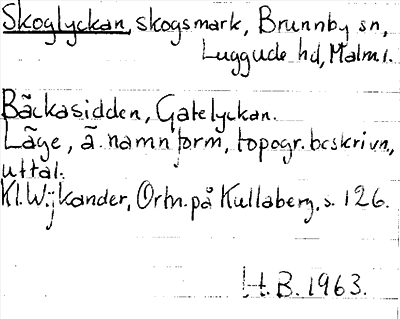 Skoglyckan, skogsmark, Brunnby sn,
Luggude hd, Malm.
Bäckasidden, Gatelyckan.
Läge, ä. namnform, topogr. beskrivn.,
uttal.
Kl. Wijkander, Ortn. på Kullaberg, s. 126.
B. 1963.